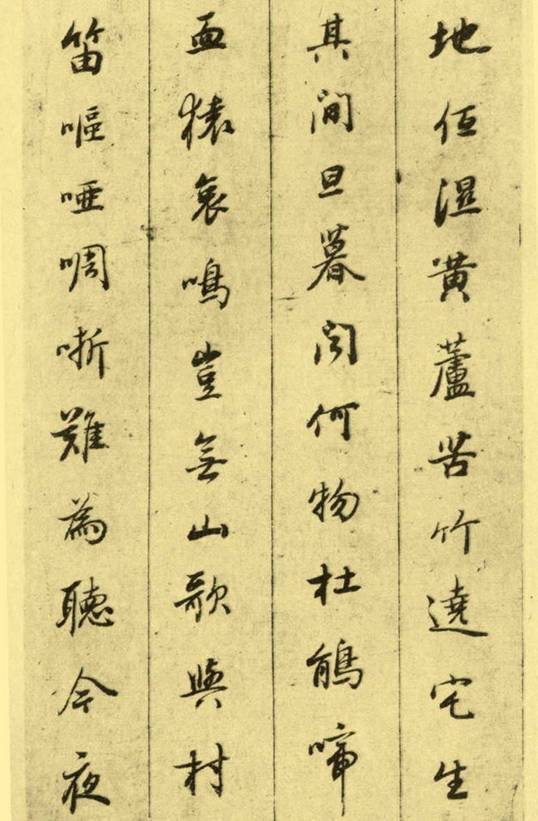 地低濕黃蘆苦竹遶宅生
其間旦暮聞何物杜鵑啼
血猿哀鳴豈無山歌與村
笛嘔啞啁哳難為聽今夜